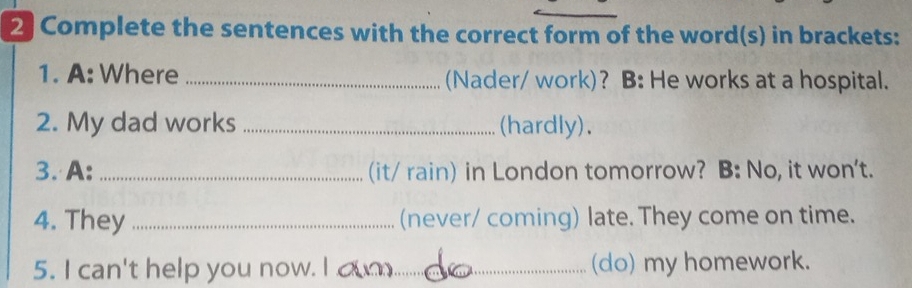 2 Complete the sentences with the correct form of the word(s) in brackets:
1. A: Where ........................ (Nader/ work)? B: He works at a hospital.
2. My dad works ........................ (hardly).
3. A: ........................ (it/ rain) in London tomorrow? B: No, it won't.
4. They ........................ (never/ coming) late. They come on time.
5. I can't help you now. I am do ............ (do) my homework.